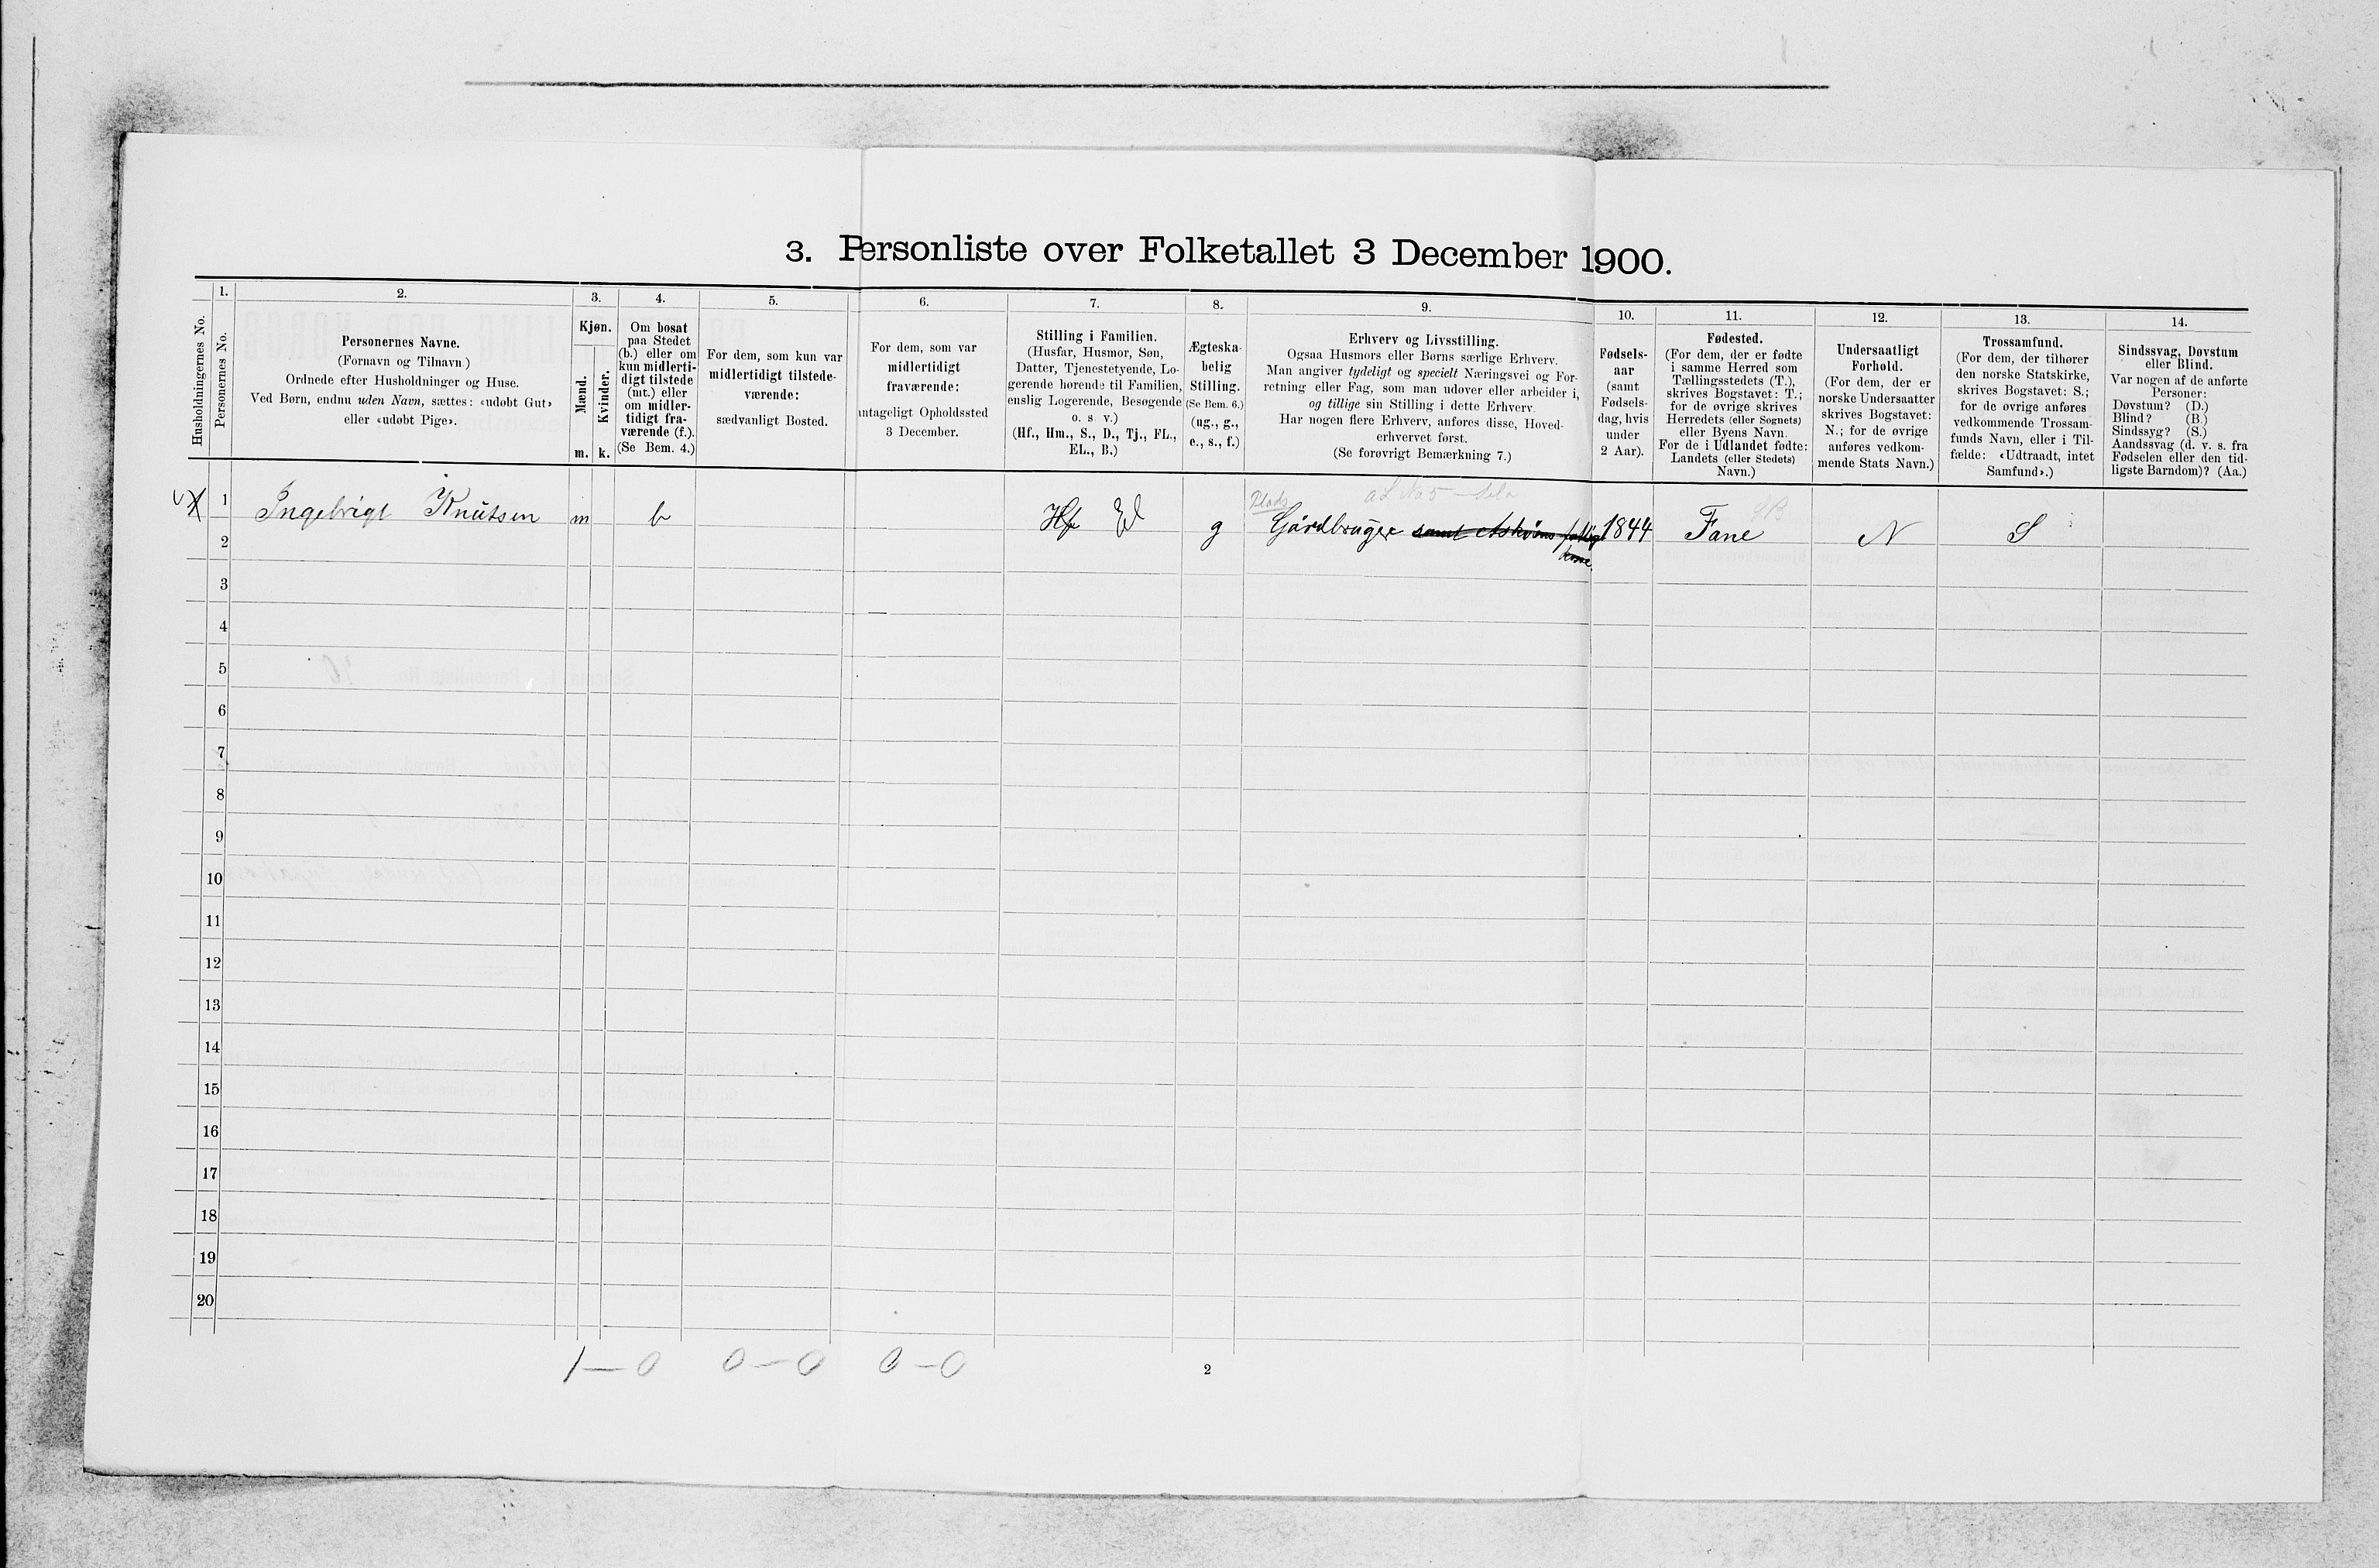 3. Personliste over Folketallet 3 December 1900.
Husholdningernes No.
1.
Personernes No.
2.
Personernes Navne.
(Fornavn og Tilnavn.)
Ordnede efter Husholdninger og Huse.
Ved Børn, endnu uden Navn, sættes: «udøbt Gut»
eller «udøbt Pige».
3.
Kjøn.
Mænd.
Kvinder.
m. k.
4.
Om bosat
paa Stedet
(b.) eller om
kun midlerti-
digt tilstede
(mt.) eller
om midler-
tidigt fra-
værende (f.).
(Se Bem. 4.)
5.
For dem, som kun var
midlertidigt tilstede-
værende:
sædvanligt Bosted.
6.
For dem, som var
midlertidigt
fraværende:
antageligt Opholdssted
3 December.
7.
Stilling i Familien.
(Husfar, Husmor, Søn,
Datter, Tjenestetyende, Lo-
gerende hørende til Familien,
enslig Logerende, Besøgende
o. s. v.)
(Hf., Hm., S., D., Tj., FL.,
EL., B.)
8.
Ægteska-
belig
Stilling.
(Se Bem. 6.)
(ug., g.,
e., s., f.)
9.
Erhverv og Livsstilling.
Ogsaa Husmors eller Børns særlige Erhverv.
Man angiver tydeligt og specielt Næringsvei og For-
retning eller Fag, som man udøver eller arbeider i,
og tillige sin Stilling i dette Erhverv.
Har nogen flere Erhverv, anføres disse, Hoved-
erhvervet først.
(Se forøvrigt Bemærkning 7.)
10.
Fødsels-
aar
(samt
Fødsels-
dag, hvis
under
2 Aar).
11.
Fødested.
(For dem, der er fødte
i samme Herred som
Tællingsstedets (T.),
skrives Bogstavet: T.;
for de øvrige skrives
Herredets (eller Sognets)
eller Byens Navn.
For de i Udlandet fødte:
Landets (eller Stedets)
Navn.)
12.
Undersaatligt
Forhold.
(For dem, der er
norske Undersaatter
skrives Bogstavet:
N.; for de øvrige
anføres vedkom-
mende Stats Navn.)
13.
Trossamfund.
(For dem, der tilhører
den norske Statskirke,
skrives Bogstavet: S.;
for de øvrige anføres
vedkommende Trossam-
funds Navn, eller i Til-
fælde: «Udtraadt, intet
Samfund».)
14.
Sindssvag, Døvstum
eller Blind.
Var nogen af de anførte
Personer:
Døvstum? (D.)
Blind? (B.)
Sindssyg? (S.)
Aandssvag (d. v. s. fra
Fødselen eller den tid-
ligste Barndom)? (Aa.)
Plads
1 Ingebrigt Knutsen m b Hf El g Gårdbruger samt 1844 Fane N S
2
3
4
5
6
7
8
9
10
11
12
13
14
15
16
17
18
19
20
1—0 0—0 0—0
2